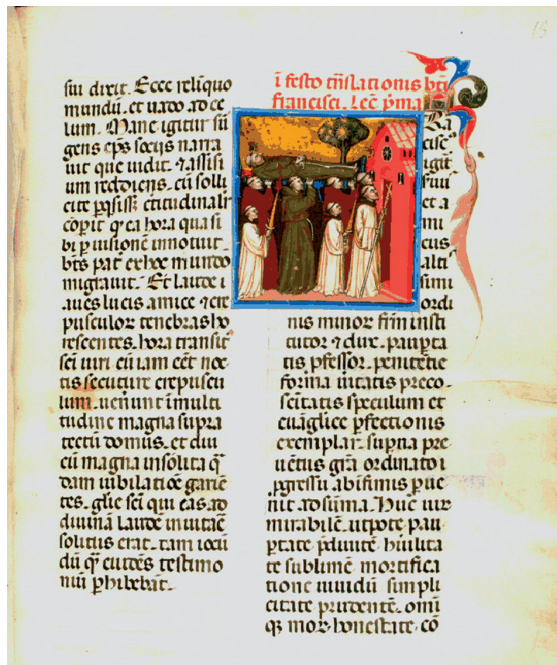 sui dixit. Ecce relinquo
mundū. et uado ad ce
lum. Mane igitur sur
gens ep̄s sociis narra
uit que uidit. ⁊ assisi
um rediens. cū solli
cite p̄q̄sisset certitudinali
cōperit q̄ ea hora qua si
bi p̄ uisionē innotuit.
btūs pat̄ ex hoc mundo
migrauit. Et laude i
aues lucis amice ⁊ cre
pusculor̄ tenebras ho
rescentes. hora transit̄
scī uiri. cū iam cēt noc
tis secuture crepuscu
lum. uenūt ī multi
tudine magna supra
tectū domus. et diu
cū magna insolita q̄
dam iubilatiōe garrīē
tes. glie scī qui eas ad
diuinā laudē īuitare
solitus erat. tam iocū
dū q̄ euidēs testimo
niū p̄hibebāt.
ī festo trāslationis btī
francisci. lec̄ p̄ma
nis minor̄ frm̄ insti
tutor ⁊ dux. paup̄ta
tis p̄fessor. penitētie
forma ūitatis preco.
scītatis speculum et
euāgliēe p̄fectionis
exemplar. sup̄na pre
uētus gr̄a ordinato
p̄gressu ab īfimis p̄ue
nit ad sūma. Hūc uir̄
mirabilē. utpote pau
p̄tate p̄diuitē. hūilita
te sublimē. mortifica
tione uiuidū. simpli
citate prudentē. omī
q̄ mor̄ honestate. cō